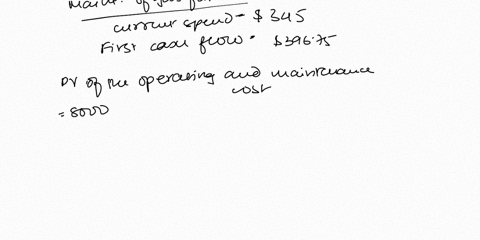 current spend = $345
First case flow = $396.75
PV of the operating and maintenance
cost
= 8000